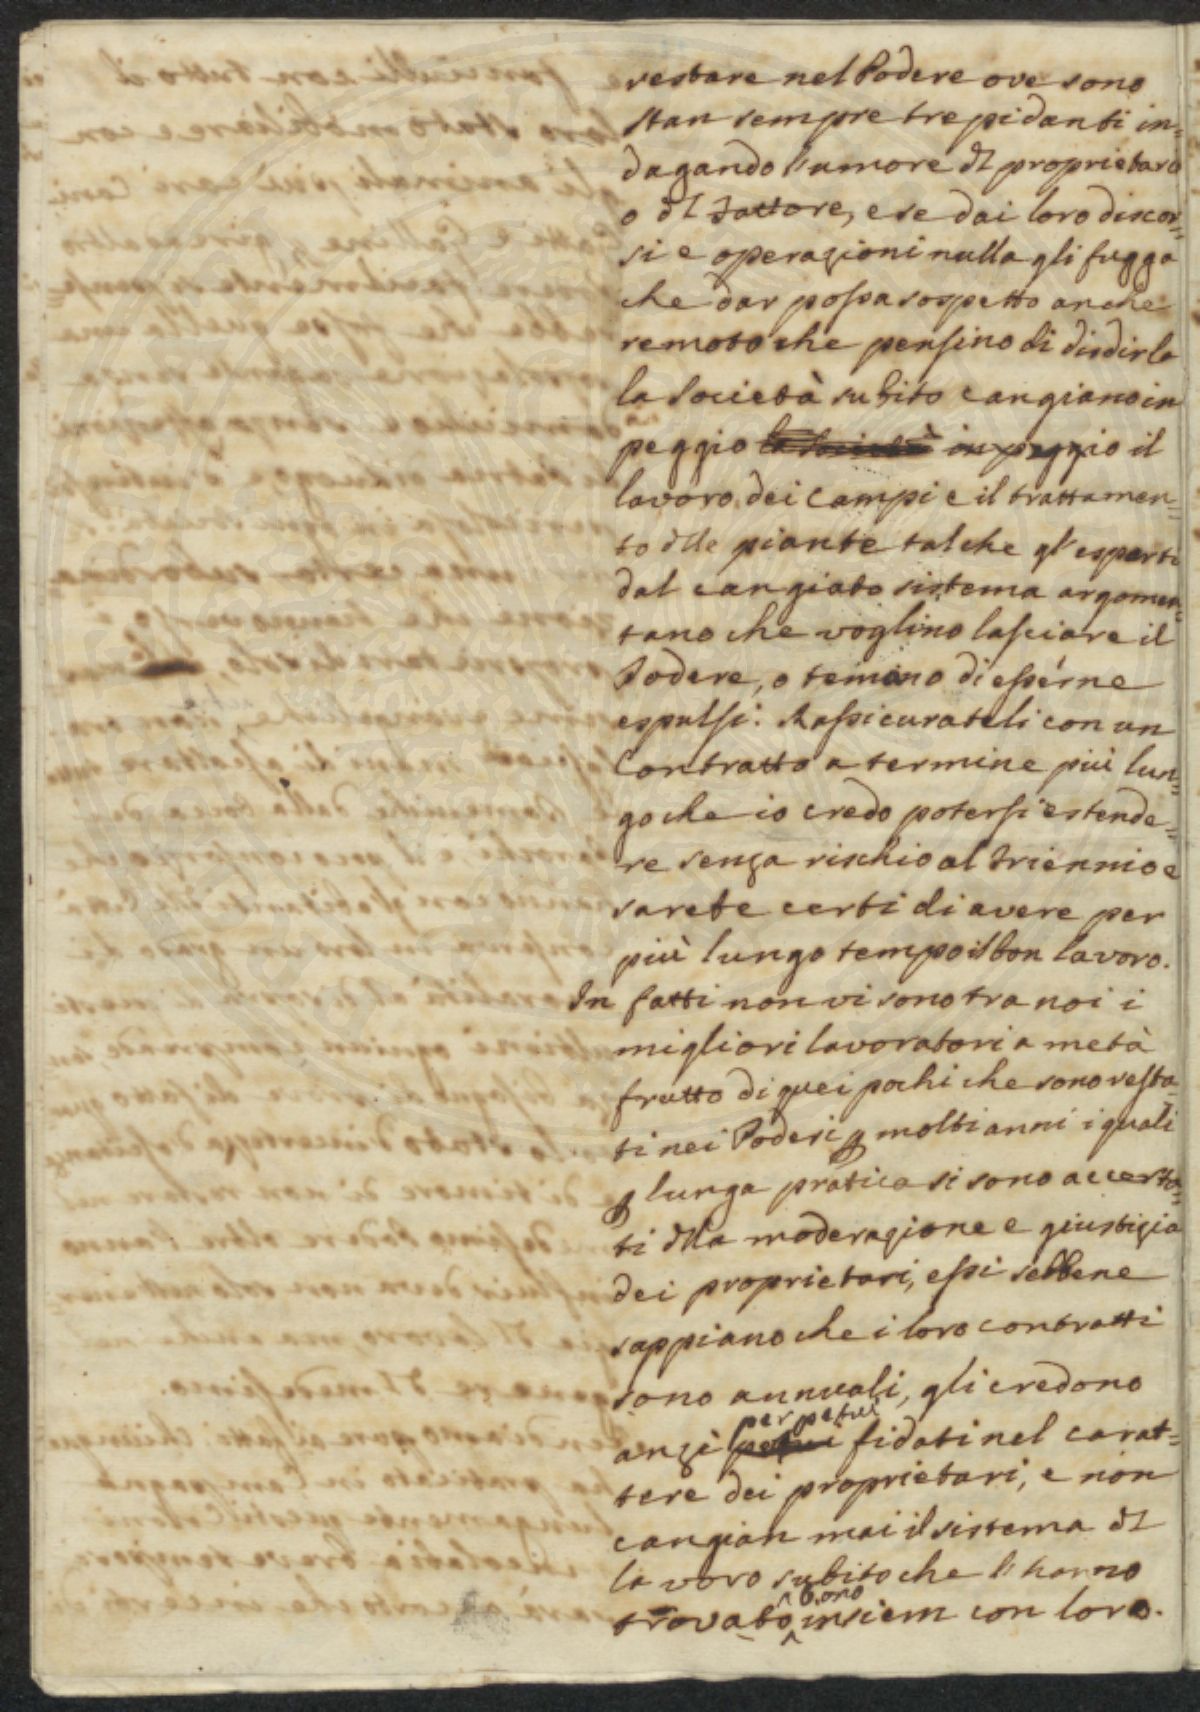 restare nel Podere ove sono
stan sempre trepidanti in=
dagando l'umore dl proprietaro
o dl Fattore, e se dai loro discor=
si e operazioni nulla gli fugga
che dar possa sospetto anche
remoto che pensino di disdirla
la Società subito cangiano in
peggio la Società in peggio il
lavoro dei Campi e il trattamen=
to dlle piante talche gl'esperti
dal cangiato sistema argomen=
tano che voglino lasciare il
Podere, o temono di esserne
espulsi. Rassicurateli con un
Contratto a termine più lun=
go che io credo potersi estende=
re senza rischio al triennio e
sarete certi di avere per
più lungo tempo il bon lavoro.
In fatti non vi sono tra noi i
migliori lavoratori a metà
frutto di quei pochi che sono resta=
ti nei Poderi p molti anni i quali
p lunga pratica si sono accerta=
ti dlla moderazione e giustizia
dei proprietari, essi sebbene
sappiano che i loro contratti
sono annuali, gli credono
anzi perpetui fidati nel carat=
tere dei proprietari, e non
cangian mai il sistema dl
lavoro subito che li hanno
trovato bono insiem con loro.